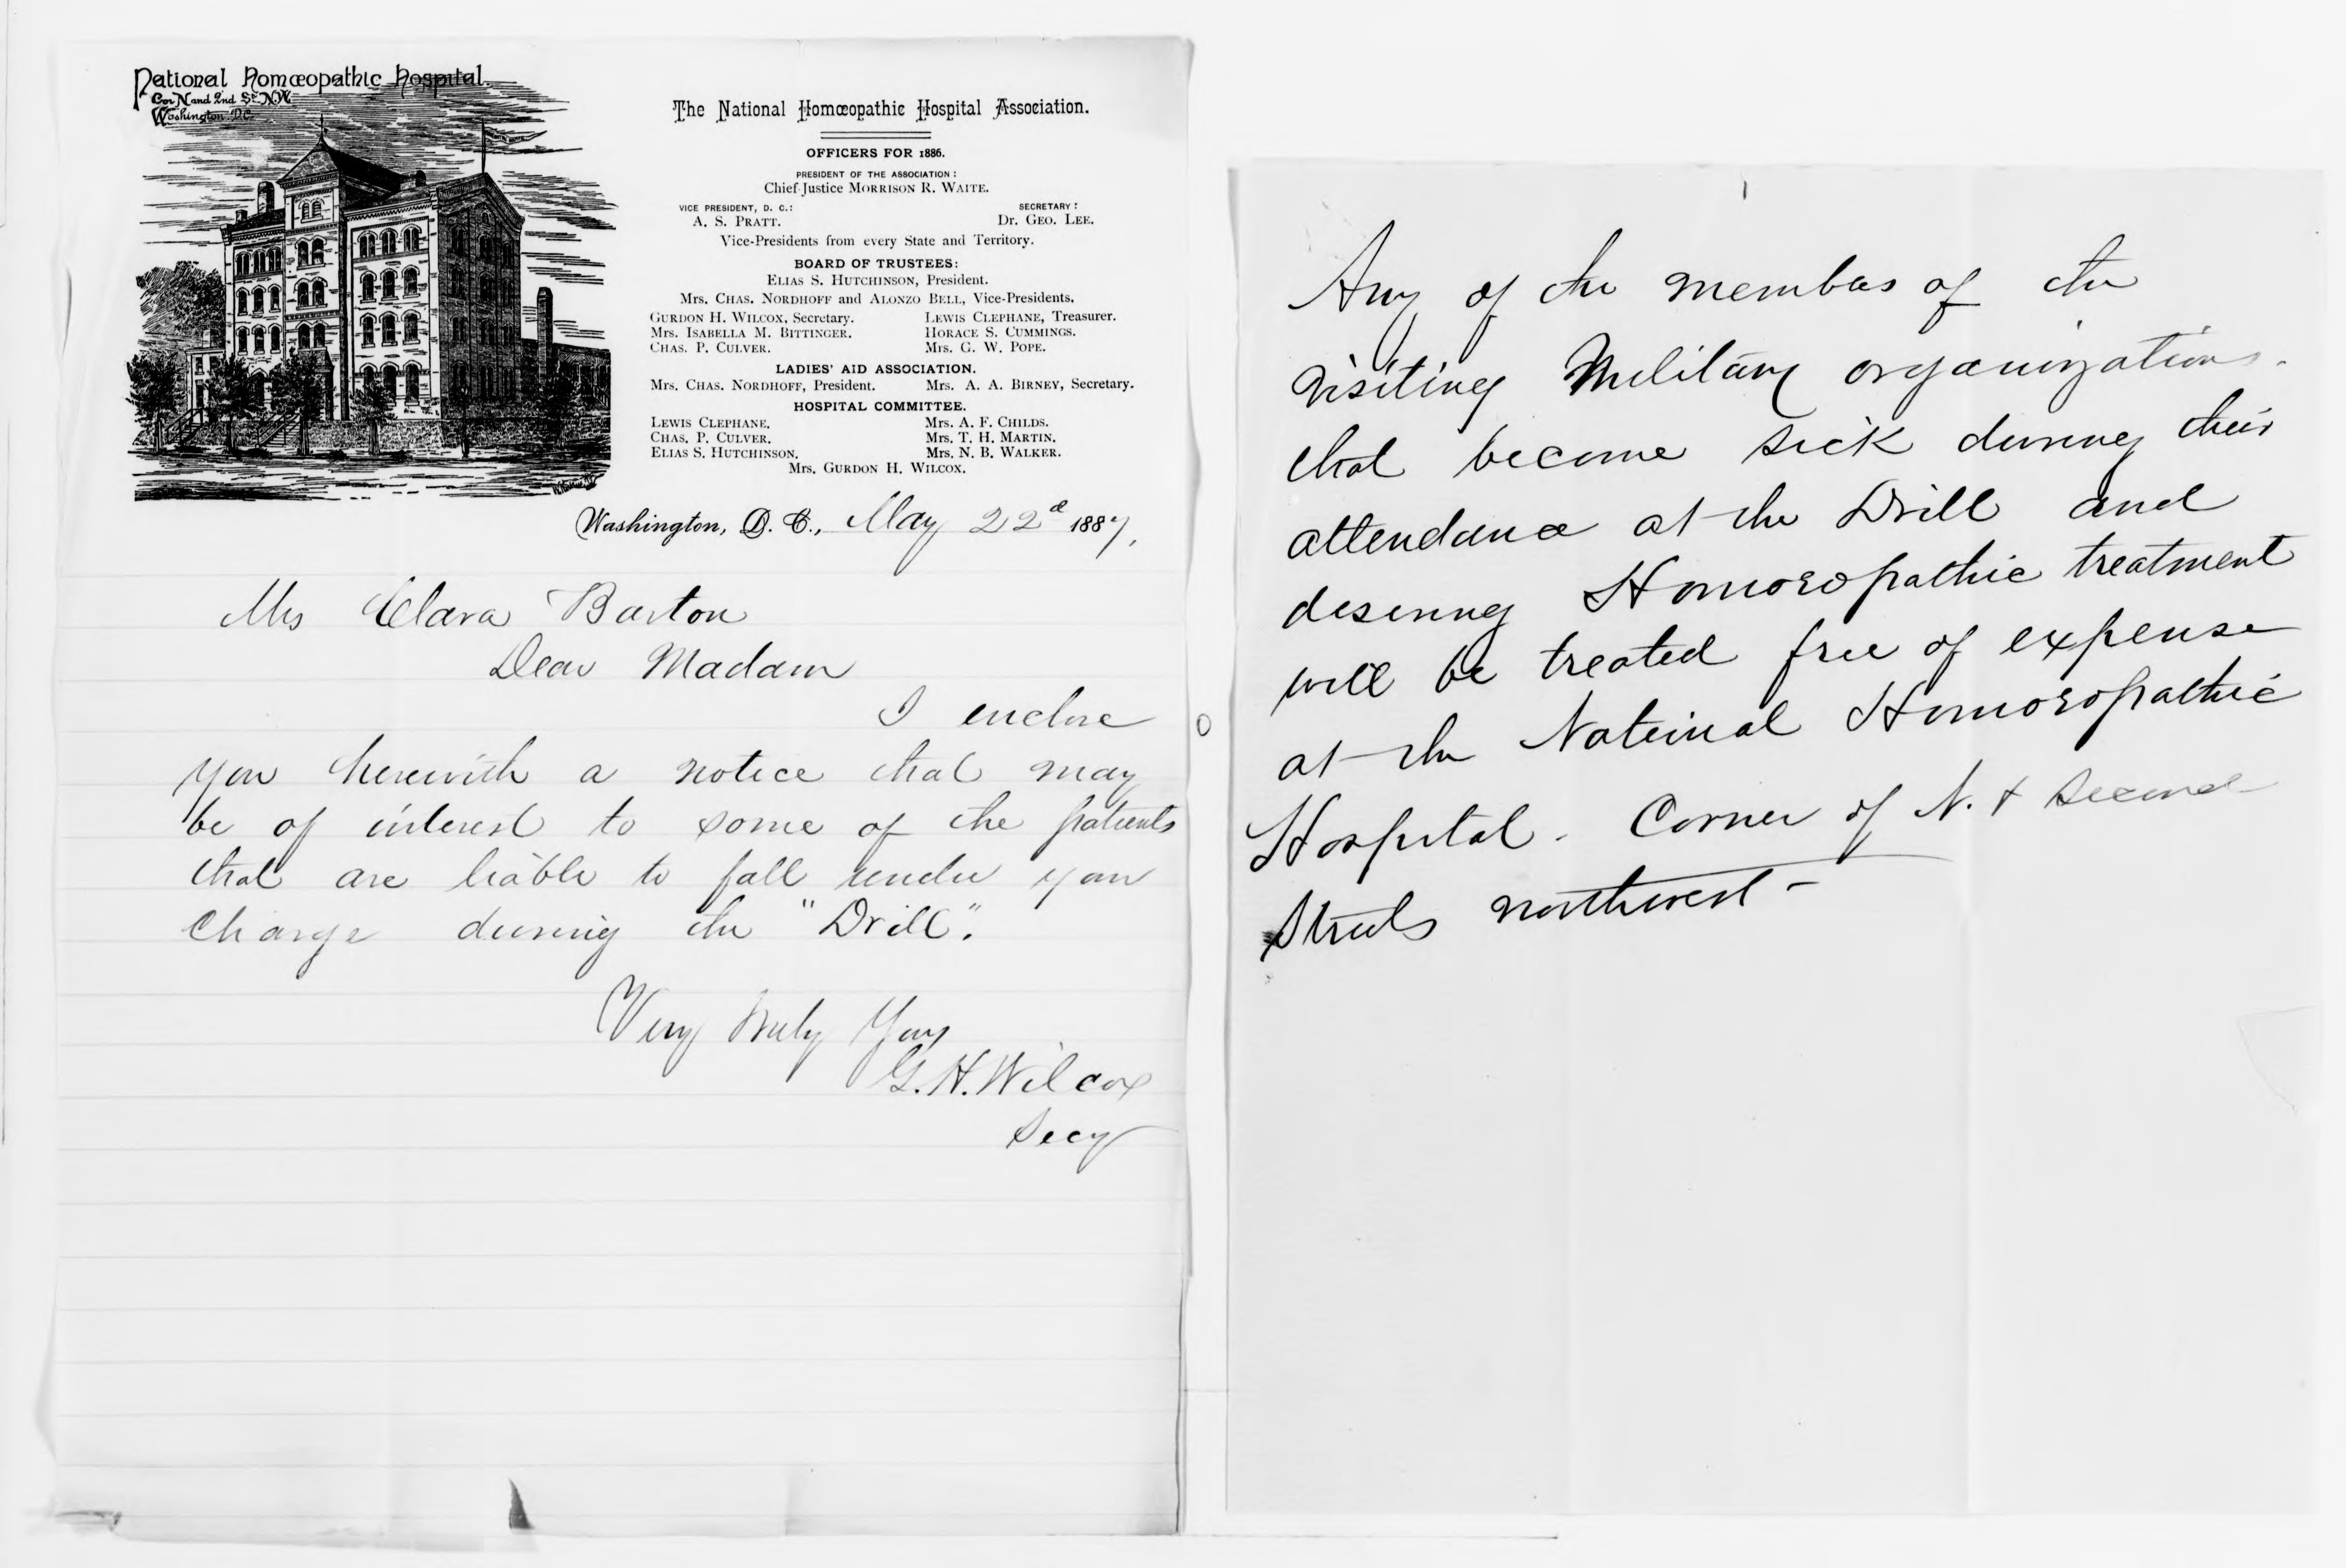 National Homœopathic Hospital.
Cor N and 2nd St. N.W.
Washington. D.C.
The National Homœopathic Hospital Association.
OFFICERS FOR 1886.
PRESIDENT OF THE ASSOCIATION:
Chief Justice MORRISON R. WAITE.
VICE PRESIDENT, D. C.: SECRETARY:
A. S. PRATT. Dr. GEO. LEE.
Vice-Presidents from every State and Territory.
BOARD OF TRUSTEES:
ELIAS S. HUTCHINSON, President.
Mrs. CHAS. NORDHOFF and ALONZO BELL, Vice-Presidents.
GURDON H. WILCOX, Secretary. LEWIS CLEPHANE, Treasurer.
Mrs. ISABELLA M. BITTINGER. HORACE S. CUMMINGS.
CHAS. P. CULVER. Mrs. G. W. POPE.
LADIES' AID ASSOCIATION.
Mrs. CHAS. NORDHOFF, President. Mrs. A. A. BIRNEY, Secretary.
HOSPITAL COMMITTEE.
LEWIS CLEPHANE. Mrs. A. F. CHILDS.
CHAS. P. CULVER. Mrs. T. H. MARTIN.
ELIAS S. HUTCHINSON. Mrs. N. B. WALKER.
Mrs. GURDON H. WILCOX.
Washington, D. C., May 22d 1887.
Mrs Clara Barton
Dear Madam
I enclose
you herewith a notice that may
be of interest to some of the patients
that are liable to fall under your
charge during the "Drill".
Very truly Yours
G. H. Wilcox
Secy
Any of the members of the
visiting Military organizations.
that become sick during their
attendance at the Drill and
desiring Homoeopathic treatment
will be treated free of expense
at the National Homoeopathic
Hospital. Corner of N. & Second
Streets northwest -